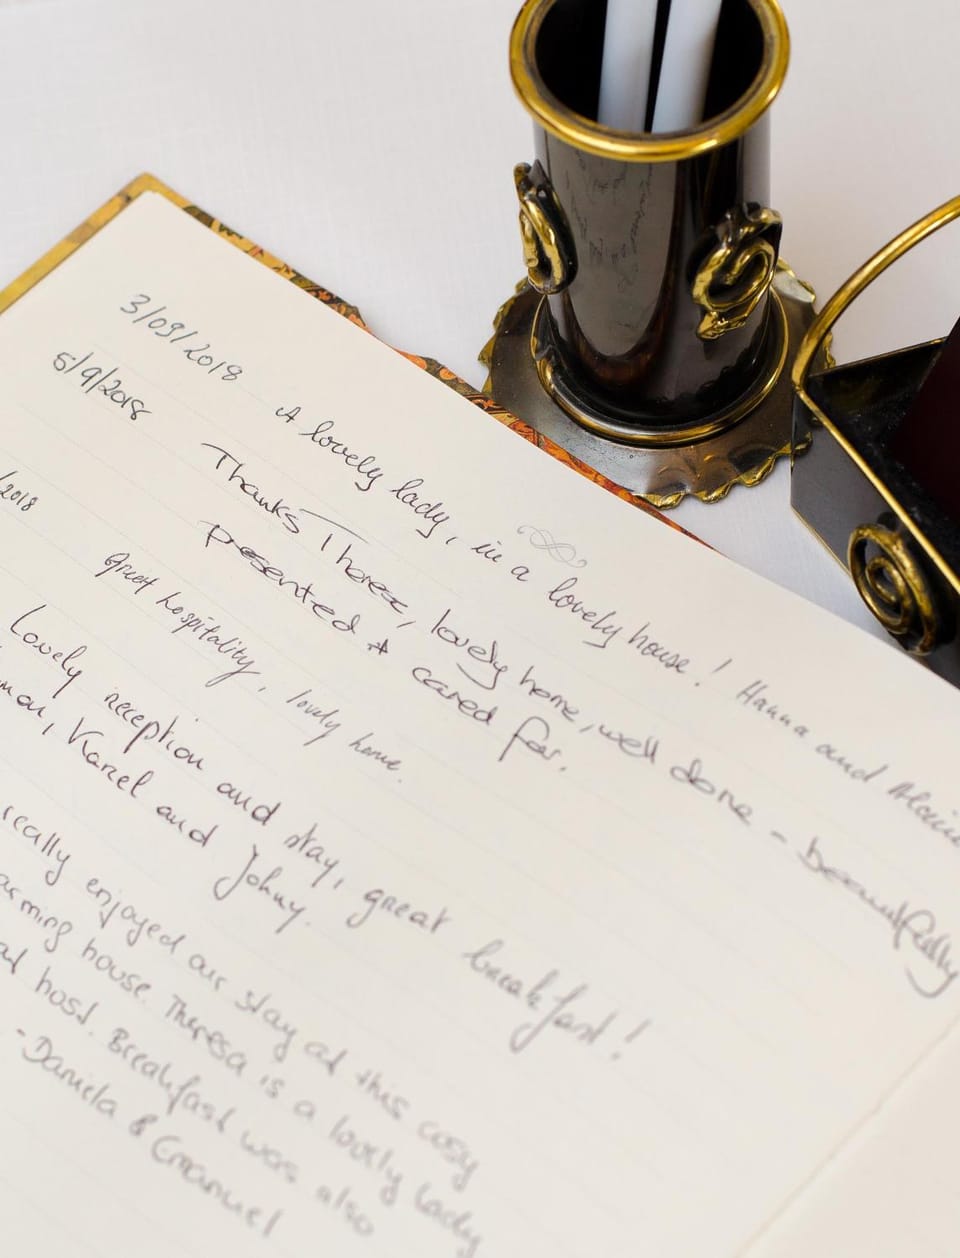 3/09/2018 A lovely lady, in a lovely house! Hanna and
5/9/2018 Thanks Therese, lovely home, well done - beautifully
presented & cared for.
/2018 great hospitality, lovely home.
Lovely reception and stay, great breakfast!
Karel and Johny.
really enjoyed our stay at this cosy
house. Theresa is a lovely lady
host. Breakfast was also
- Daniela & Emanuel